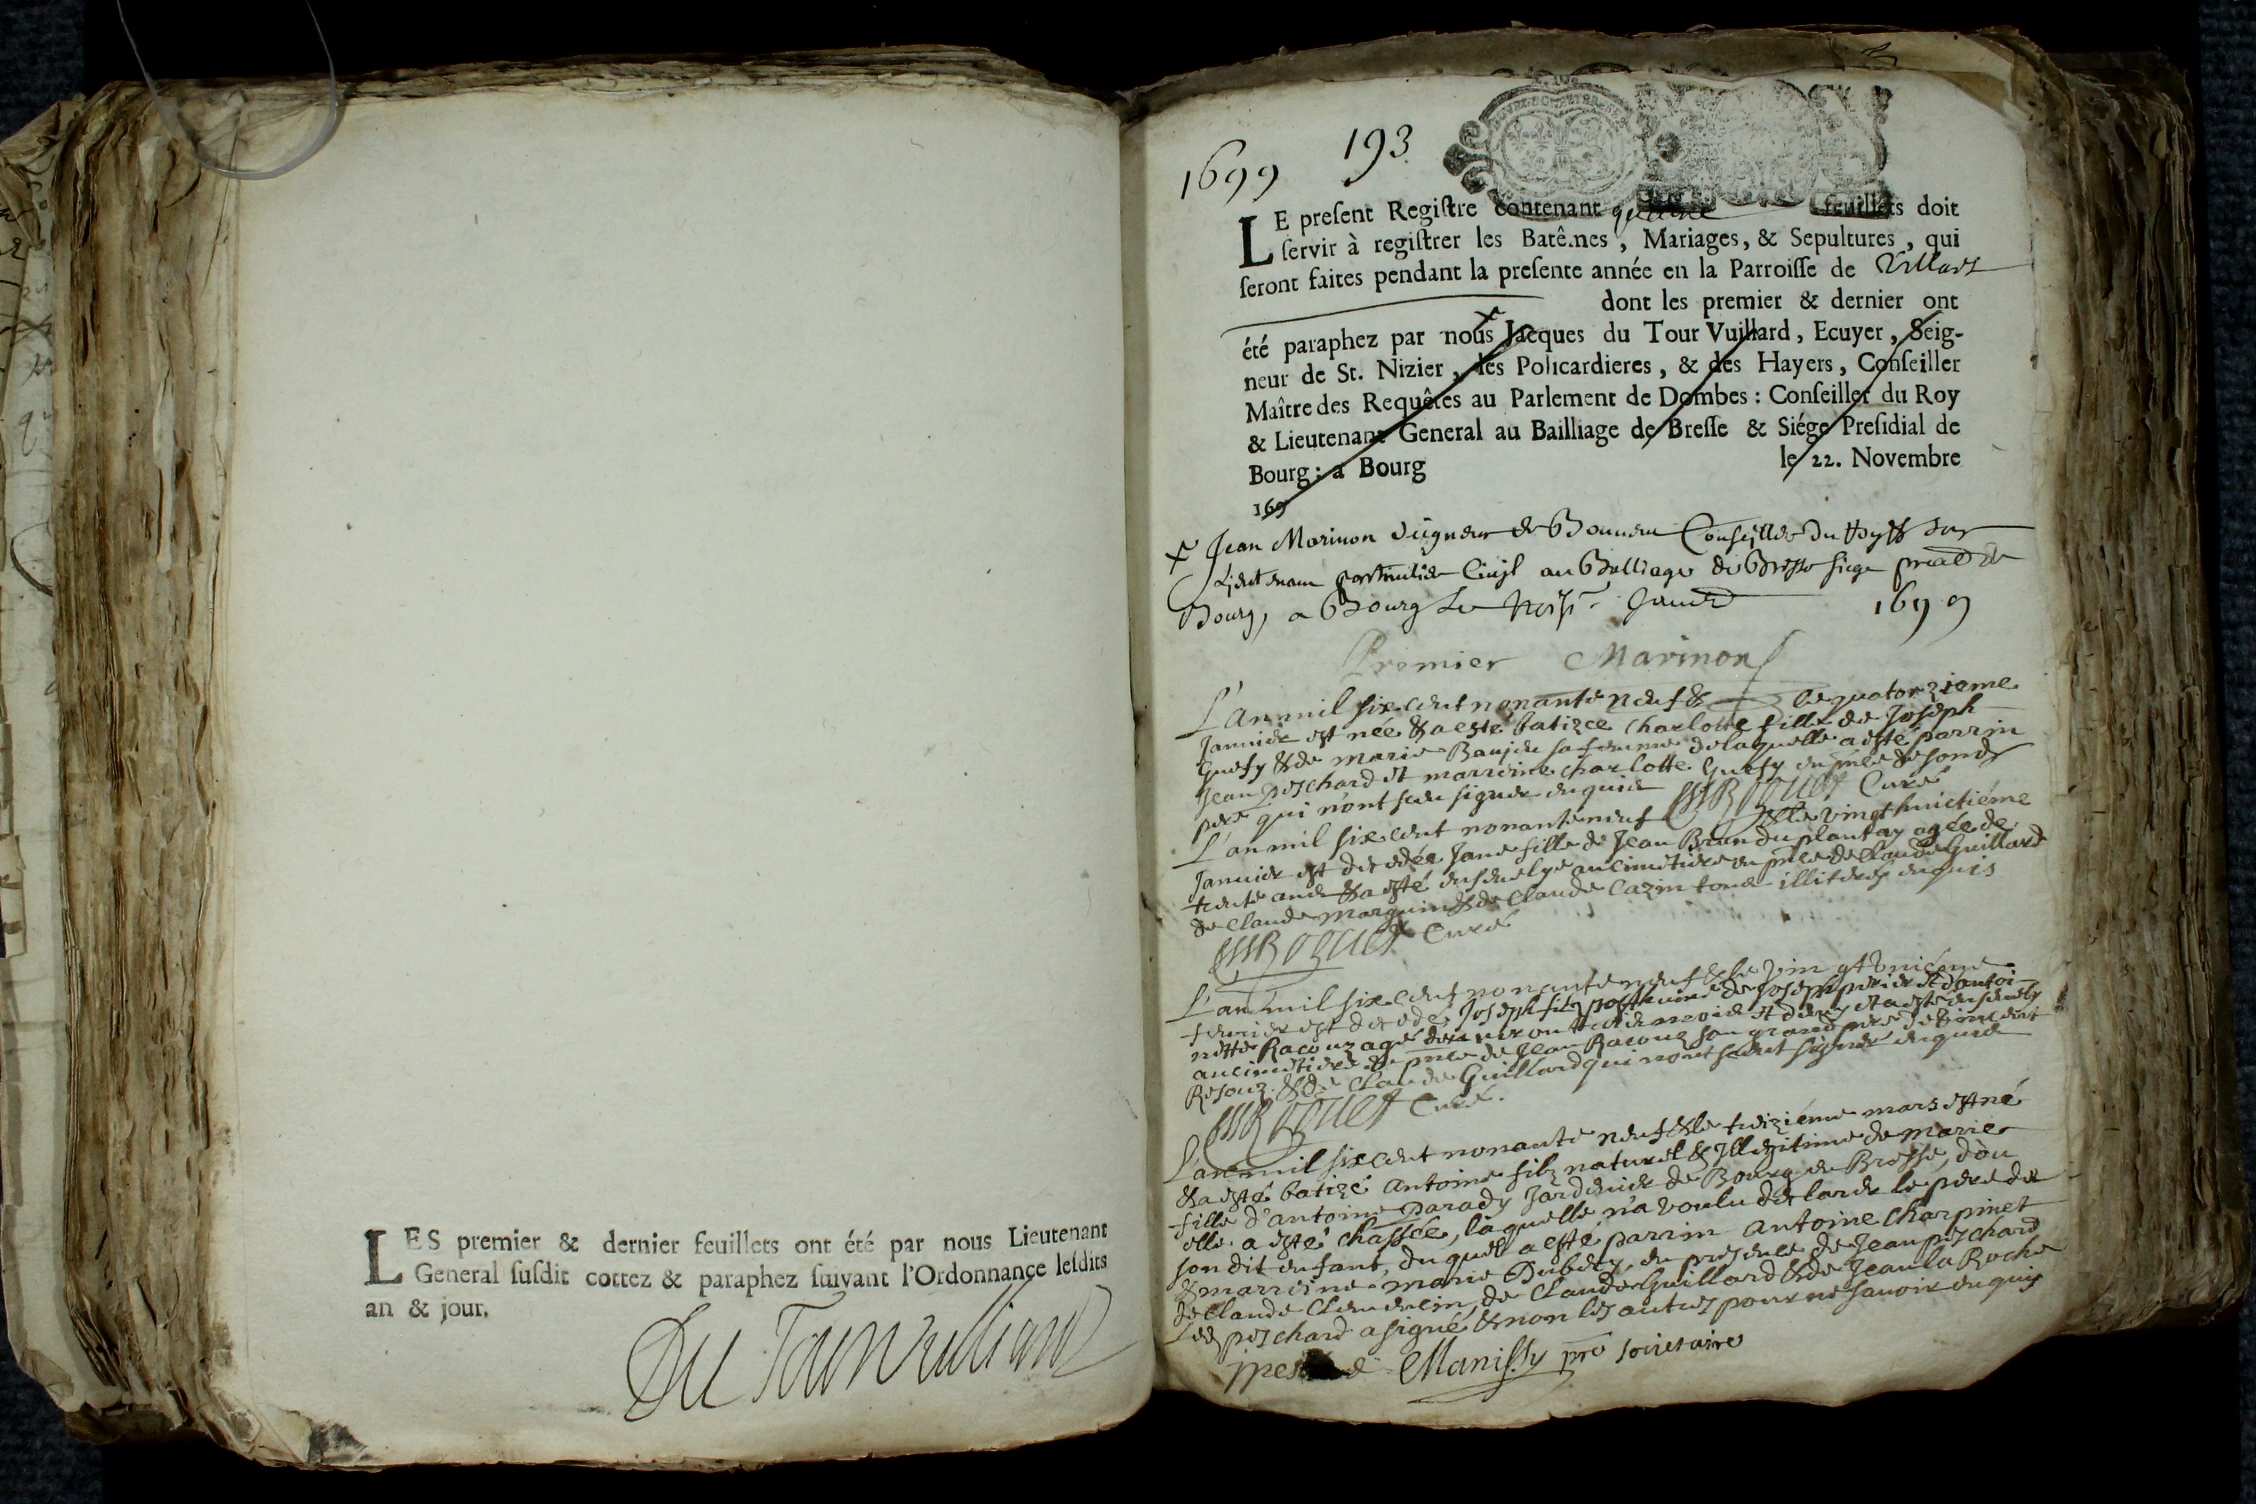 LES premier & dernier feuillets ont été par nous Lieutenant
General ſuſdit cottez & paraphez ſuivant l'Ordonnance leſdits
an & jour.
Du Tour Vuillard
1699
193
LE preſent Regiſtre contenant feuillets doit
ſervir à regiſtrer les Batêmes, Mariages, & Sepultures, qui
ſeront faites pendant la preſente année en la Parroiſſe de Villars
dont les premier & dernier ont
été paraphez par nous Jacques du Tour Vuillard, Ecuyer, Seig-
neur de St. Nizier, les Policardieres, & des Hayers, Conſeiller
Maître des Requêtes au Parlement de Dombes : Conſeiller du Roy
& Lieutenant General au Bailliage de Breſſe & Siége Preſidial de
Bourg : a Bourg le 22. Novembre
169
Jean Marinon Seigneur de Conseiller du Roy
Lieutenant particulier Civil au Balliage de Bresse siege
Bourg, a Bourg le 1699
Premier Marinon
L'an mil six cent nonante neuf & le quatorzieme
Janvier est née & a esté batizee Charlotte fille de Joseph
Guesy & de marie Baujeu sa femme de laquelle a esté parrin
Jean peschard et marreine charlotte Guesy en pnce de sond
pere qui n'ont sceu signer enquis Curé
L'an mil six cent nonante neuf & le vingt huictiéme
Janvier est decedée Jane fille de Jean Brun du plantay agée de
trente ans & a esté ensevelye au cimetiere en pnce de Claude Guillard
de Claude marguin & de Claude Cazin tous illiteres enquis
Curé
L'an mil six cent nonante neuf & le vin gt Uniéme
fevrier est decedé Joseph fils posthume de Joseph perier & d'antoi-
nette Racouz agé d'environ mois et demy et a esté ensevely
au cimetiere en pnce de Jean Racouz son grand pere de vincent
Resouz & de Claude Guillard qui n'ont sceut signer enquis
Curé.
L'an mil six cent nonante neuf & le treiziéme mars est né
& a esté batizé Antoine filz naturel & Illegitime de marie
fille d'antoine parady Jardinier de Bourg en Bresse, d'ou
elle a esté chassée, laquelle n'a voulu declarer le pere de
son dit enfant, duquel a esté parrin Antoine Charpinet
& marreine marie Dubost, en presence de Jean peschard
de Claude Clemencin, de Claude Guillard & de Jean la Roche
Led peschard a signé & non les autres pour ne savoir enquis
Manissy pre societaire